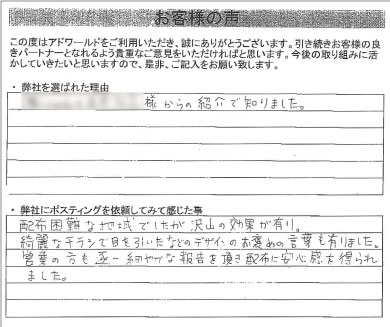 お客様の声
この度はアドワールドをご利用いただき、誠にありがとうございます。引き続きお客様の良
きパートナーとなれるよう貴重なご意見をいただければと思います。今後の取り組みに活
かしていきたいと思いますので、是非、ご記入をお願い致します。
・弊社を選ばれた理由
様からの紹介で知りました。
・弊社にポスティングを依頼してみて感じた事
配布困難な地域でしたが沢山の効果が有り。
綺麗なチラシで目を引いたなどのデザインのお褒めの言葉も有りました。
営業の方も逐一細やかな報告を頂き配布に安心感を得られ
ました。